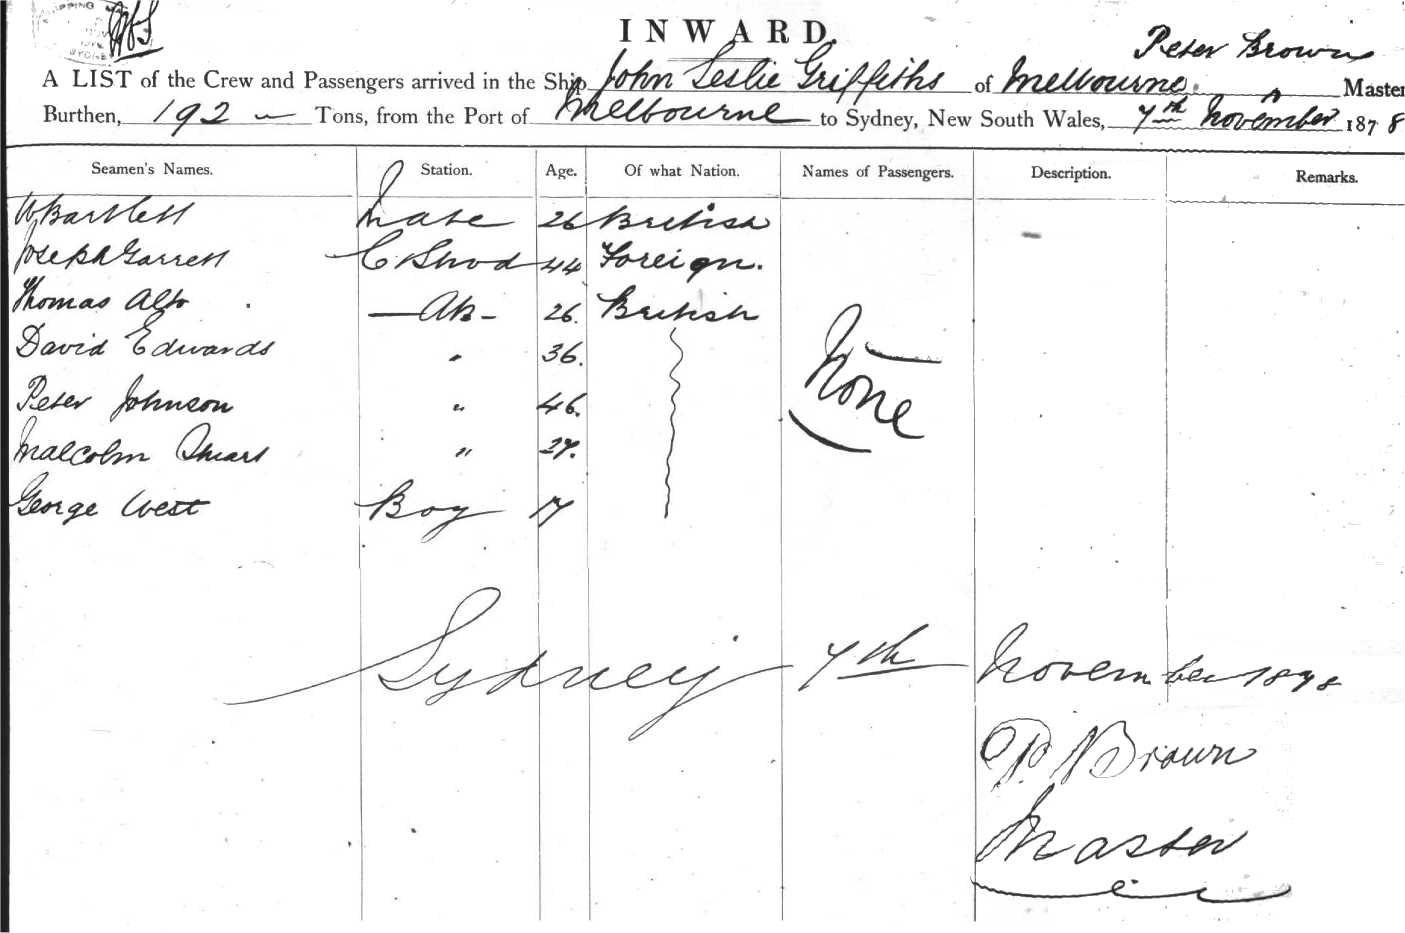 INWARD.
Peter Brown
A LIST of the Crew and Passengers arrived in the Ship John Leslie Griffiths of Melbourne. Master
Burthen, 192 Tons, from the Port of Melbourne to Sydney, New South Wales, 7th November 1878
Seamen's Names. Station. Age. Of what Nation. Names of Passengers. Description. Remarks.
W Bartlett Mate 26 British
Joseph Garrett 44 Foreign.
Thomas Alto AB 26. British
David Edwards " 36.
Peter Johnson " 46.
Malcolm Stuart " 27.
George West Boy 17
None
Sydney 7th November 1878
P Brown
Master